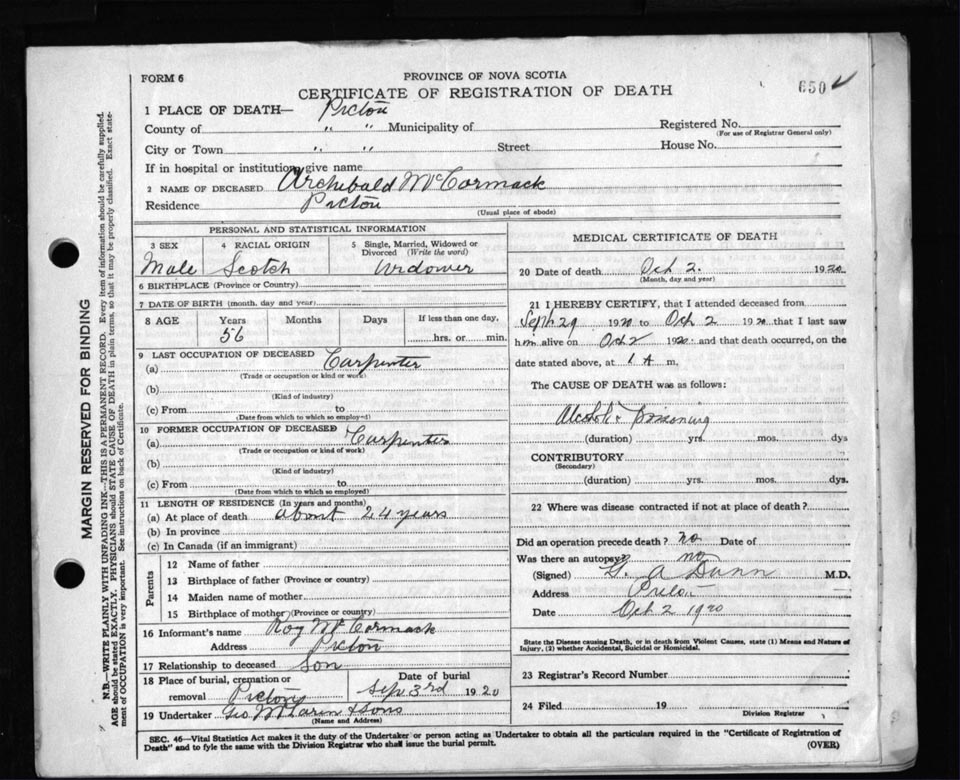 FORM 6
PROVINCE OF NOVA SCOTIA
CERTIFICATE OF REGISTRATION OF DEATH
650
1 PLACE OF DEATH— Pictou
County of " " Municipality of
Registered No.
(For use of Registrar General only)
City or Town " " Street
House No.
If in hospital or institution, give name
2 NAME OF DECEASED Archibald McCormack
Residence Pictou
(Usual place of abode)
PERSONAL AND STATISTICAL INFORMATION
3 SEX Male
4 RACIAL ORIGIN Scotch
5 Single, Married, Widowed or Divorced (Write the word) Widower
6 BIRTHPLACE (Province or Country)
7 DATE OF BIRTH (month, day and year)
8 AGE Years 56 Months Days If less than one day, hrs. or min.
9 LAST OCCUPATION OF DECEASED
(a) Carpenter
(Trade or occupation or kind or work)
(b)
(Kind of industry)
(c) From to
(Date from which to which so employed)
10 FORMER OCCUPATION OF DECEASED
(a) Carpenter
(Trade or occupation or kind of work)
(b)
(Kind of industry)
(c) From to
(Date from which to which so employed)
11 LENGTH OF RESIDENCE (In years and months)
(a) At place of death about 24 years
(b) In province
(c) In Canada (if an immigrant)
Parents
12 Name of father
13 Birthplace of father (Province or country)
14 Maiden name of mother
15 Birthplace of mother (Province or country)
16 Informant's name Roy McCormack
Address Pictou
17 Relationship to deceased Son
18 Place of burial, cremation or removal Pictou
Date of burial Sep 3rd 1920
19 Undertaker Geo & Sons
(Name and Address)
MEDICAL CERTIFICATE OF DEATH
20 Date of death Oct 2. 1920
(Month, day and year)
21 I HEREBY CERTIFY, that I attended deceased from
Sept 29 1920 to Oct 2 1920 that I last saw
him alive on Oct 2 1920 and that death occurred, on the
date stated above, at 1 A m.
The CAUSE OF DEATH was as follows:
Alcoholic Poisoning
(duration) yrs. mos. dys
CONTRIBUTORY
(Secondary)
(duration) yrs. mos. dys.
22 Where was disease contracted if not at place of death?
Did an operation precede death? no Date of
Was there an autopsy? no
(Signed) G. A Dunn M.D.
Address Pictou
Date Oct 2 1920
State the Disease causing Death, or in death from Violent Causes, state (1) Means and Nature of
Injury, (2) whether Accidental, Suicidal or Homicidal.
23 Registrar's Record Number
24 Filed 19
Division Registrar
SEC. 46—Vital Statistics Act makes it the duty of the Undertaker or person acting as Undertaker to obtain all the particulars required in the "Certificate of Registration of
Death" and to fyle the same with the Division Registrar who shall issue the burial permit.
(OVER)
MARGIN RESERVED FOR BINDING
N.B.—WRITE PLAINLY WITH UNFADING INK—THIS IS A PERMANENT RECORD. Every item of information should be carefully supplied.
AGE should be stated EXACTLY. PHYSICIANS should STATE CAUSE OF DEATH in plain terms, so that it may be properly classified. Exact state-
ment of OCCUPATION is very important. See instructions on back of Certificate.